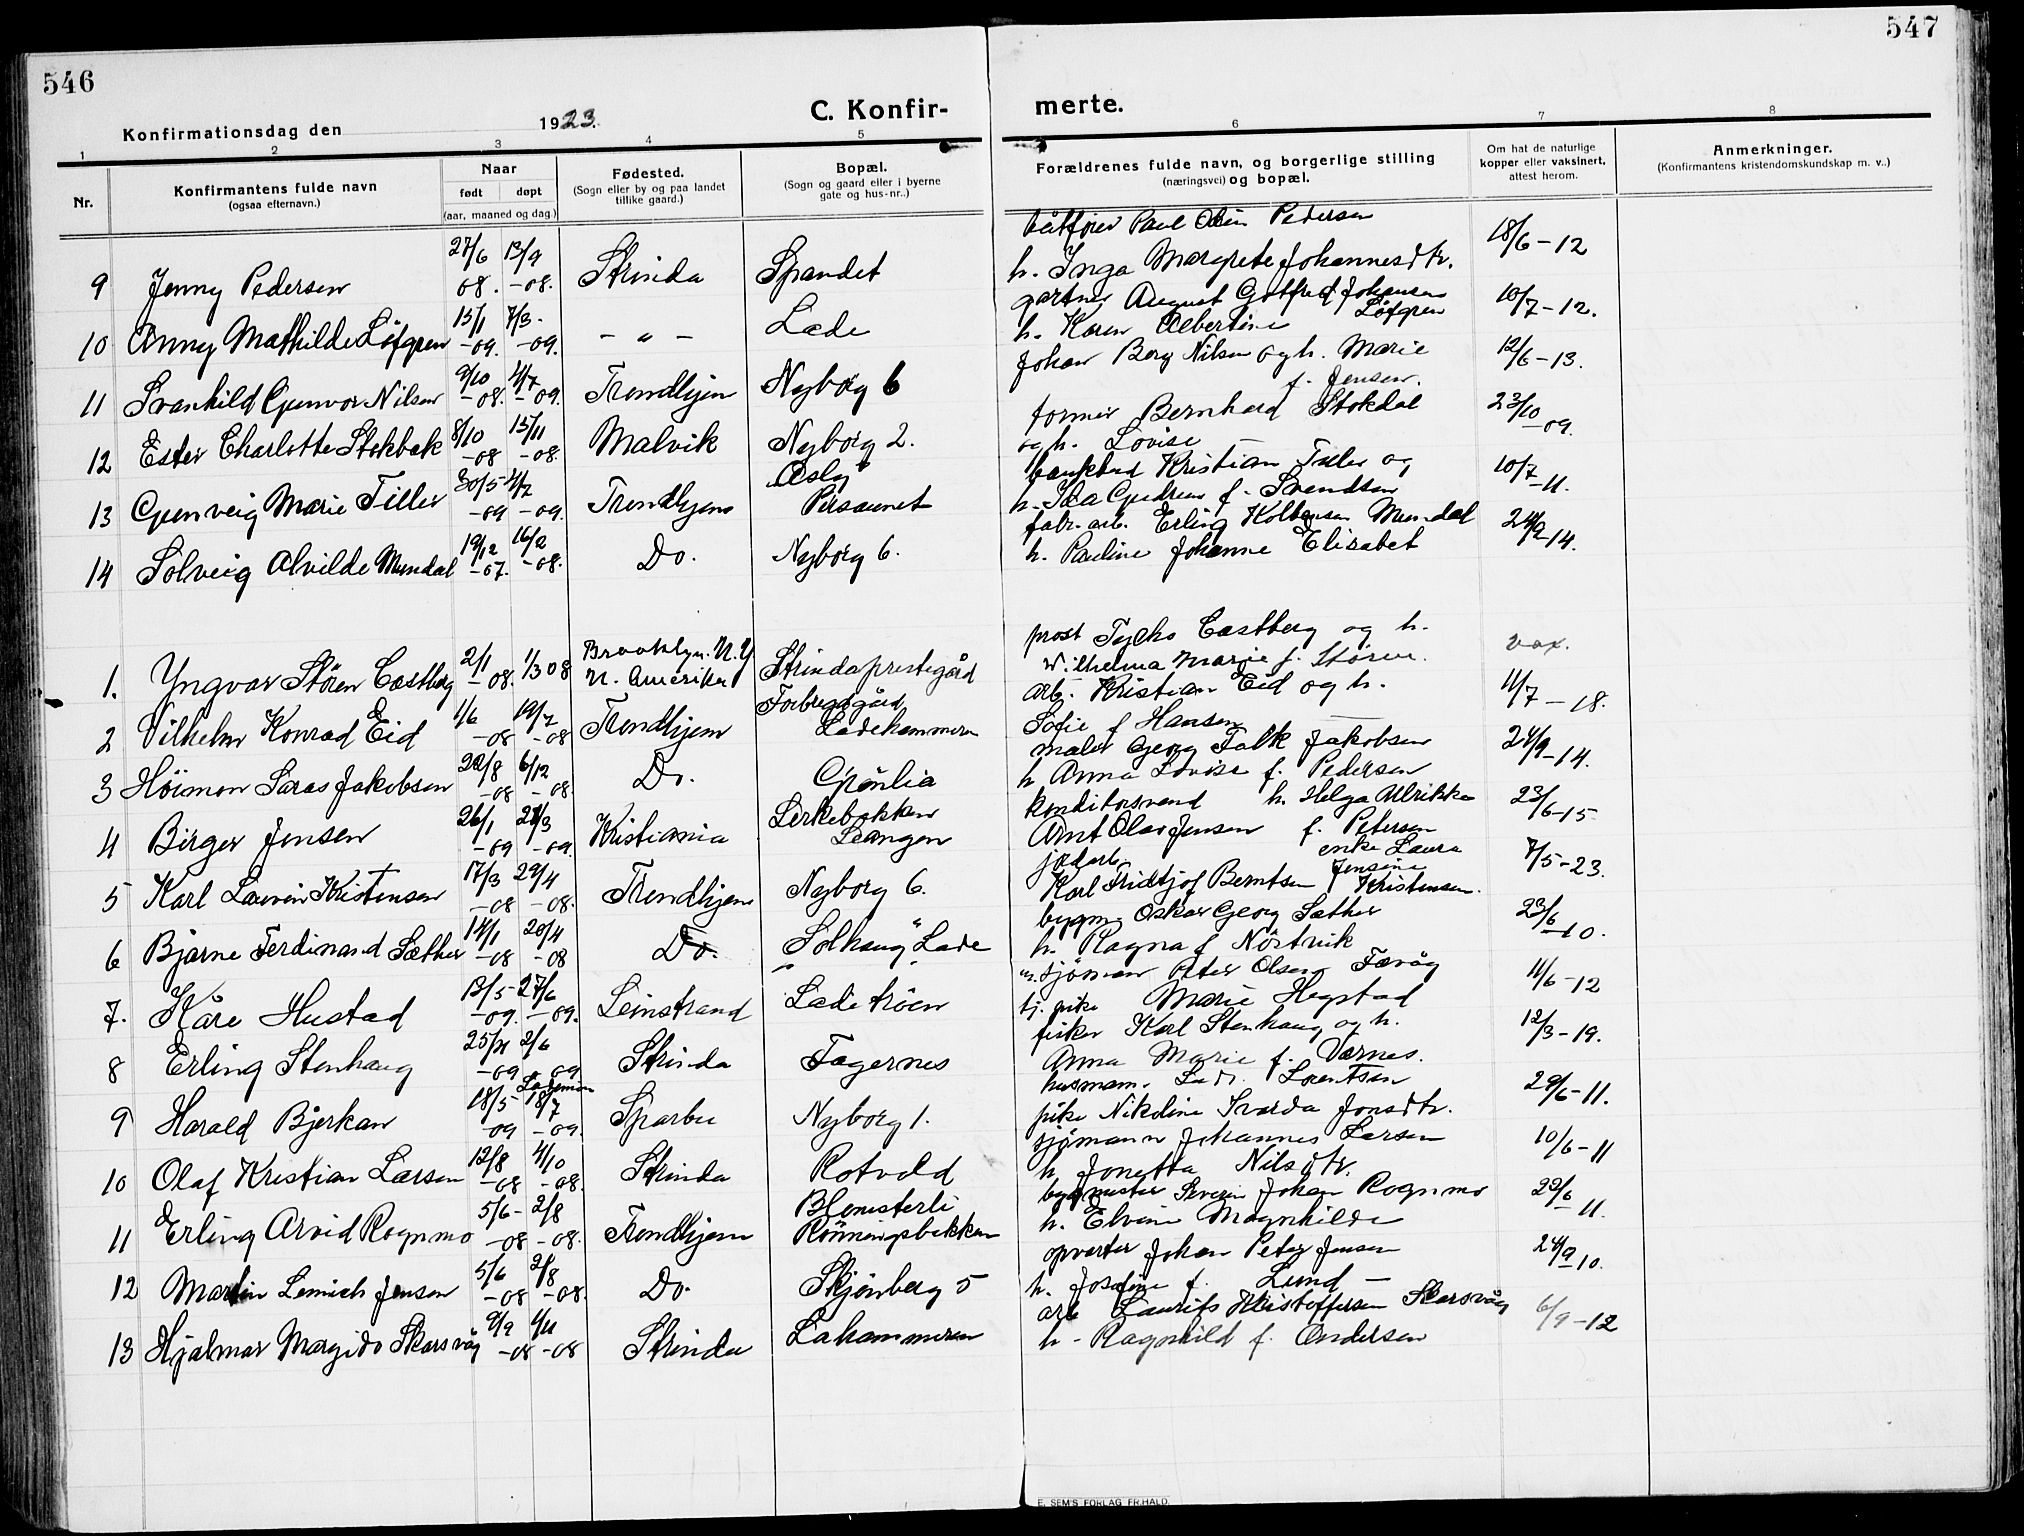 546
547
Konfirmationsdag den 1923.
C. Konfir-
merte.
1 2 3 4 5 6 7 8
Nr.
Konfirmantens fulde navn
(ogsaa efternavn.)
Naar
født døpt
(aar, maaned og dag.)
Fødested.
(Sogn eller by og paa landet
tillike gaard.)
Bopæl.
(Sogn og gaard eller i byerne
gate og hus-nr..)
Forældrenes fulde navn, og borgerlige stilling
(næringsvei) og bopæl.
Om hat de naturlige
kopper eller vaksinert,
attest herom.
Anmerkninger.
(Konfirmantens kristendomskundskap m. v..)
9 Jenny Pedersen 27/6 08. 13/9 -08. Strinda Spandet Paul Pedersen h. Inga Margrete Johannesdtr. 18/6-12
10 Anny Mathilde Löfgren 15/1 -09. 7/3 -09. - " - Lade gartner August Gotfred Johansen Löfgren h. Karen Albertine 10/7-12.
11 Svanhild Gunvor Nilsen 9/10 -08. 4/7 -09. Trondhjem Nyborg 6 Johan Berg Nilsen og h. Marie f. Jensen. 12/6-13.
12 Ester Charlotte Stokbak 8/10 -08 15/11 -08. Malvik Nyborg 2. former Bernhard Stokdal og h. Lovise 23/10 -09.
13 Gunveig Marie Tiller 30/5 -09 4/7 -09. Trondhjem Persaunet Kristian Tiller og h. Ida Gudrun f. Svendsen 10/7-11.
14 Solveig Alvilde Mundal 19/12 -07. 16/2 -08. Do. Nyborg 6. fabr. arb. Erling Kolbensen Mundal h. Pauline Johanne Elisabet 24/9-14.
1. Yngvar Stören Castberg 2/1 -08. 1/3 08 Brooklyn. N.Y N. Amerika Strinda prestegård prost Tycho Castberg og h. Wilhelma Marie f. Stören. vax.
2 Vilhelm Konrad Eid 1/6 -08 19/7 -08 Trondhjem Ladehammeren arb. Kristian Eid og h. Sofie f Hansen 11/7-18.
3 Höimon Saras Jakobsen 22/8 -08 6/12 -08. Do. Grönlia maler Georg Falk Jakobsen h Anna Lovise f. Pedersen 24/9-14.
4 Birger Jensen 26/1 -09 28/3 -09. Kristiania Lerkebakken Leangen konditorsvend Arnt Olav Jensen h. Helga Ulrikke f. Petersen 23/6-15
5 Karl Laurin Kristensen 17/3 -08 29/4 -08. Trondhjem Nyborg 6. jordarb. Karl Fridtjof Berntsen enke Laura Jensine Kristensen. 7/5-23.
6 Bjarne Ferdinand Sæther 14/1 -08 20/4 -08 Do. "Solhaug" Lade bygm. Oskar Georg Sæther h. Ragna f Nöstvik 23/6 -10.
7. Kåre Hustad 13/5 -09. 27/6 -09. Leinstrand Ladetröen sjöman Peter Olsen Færöy tj. pike Marie Hegstad 11/6-12
8 Erling Stenhaug 25/4 -09 2/6 -09 Strinda Fagernes fisker Karl Stenhaug og h. Anna Marie f. Værnes. 12/3-19.
9 Harald Bjerkan 18/5 -09 18/7 -09. Sparbu Nyborg 1. husmann. Lorentsen pike Nikoline Svarda Jonsdtr. 29/6-11.
10 Olaf Kristian Larsen 12/8 -08 4/10 -08. Strinda Rotvold sjömann Johannes Larsen h Jonetta Nilsdtr. 10/6-11
11 Erling Arvid Rognmo 5/6 -08 2/8 -08. Trondhjem Blomsterli Rönningsbakken bygmester Severin Johan Rognmo h. Elvine Magnhilde 22/6 -11.
12 Martin Lemich Jensen 5/6 -08 2/8 -08. Do. Skjönberg 5 opvarter Johan Peter Jensen h. Josefine f. Lund - 24/9 10.
13 Hjalmar Margido Skarsvåg 9/9 -08 1/11 -08 Strinda Lahammeren arb Laurits Kristoffersen Skarsvåg h - Ragnhild f. Andersen 6/9-12
E. SEM'S FORLAG FR.HALD.